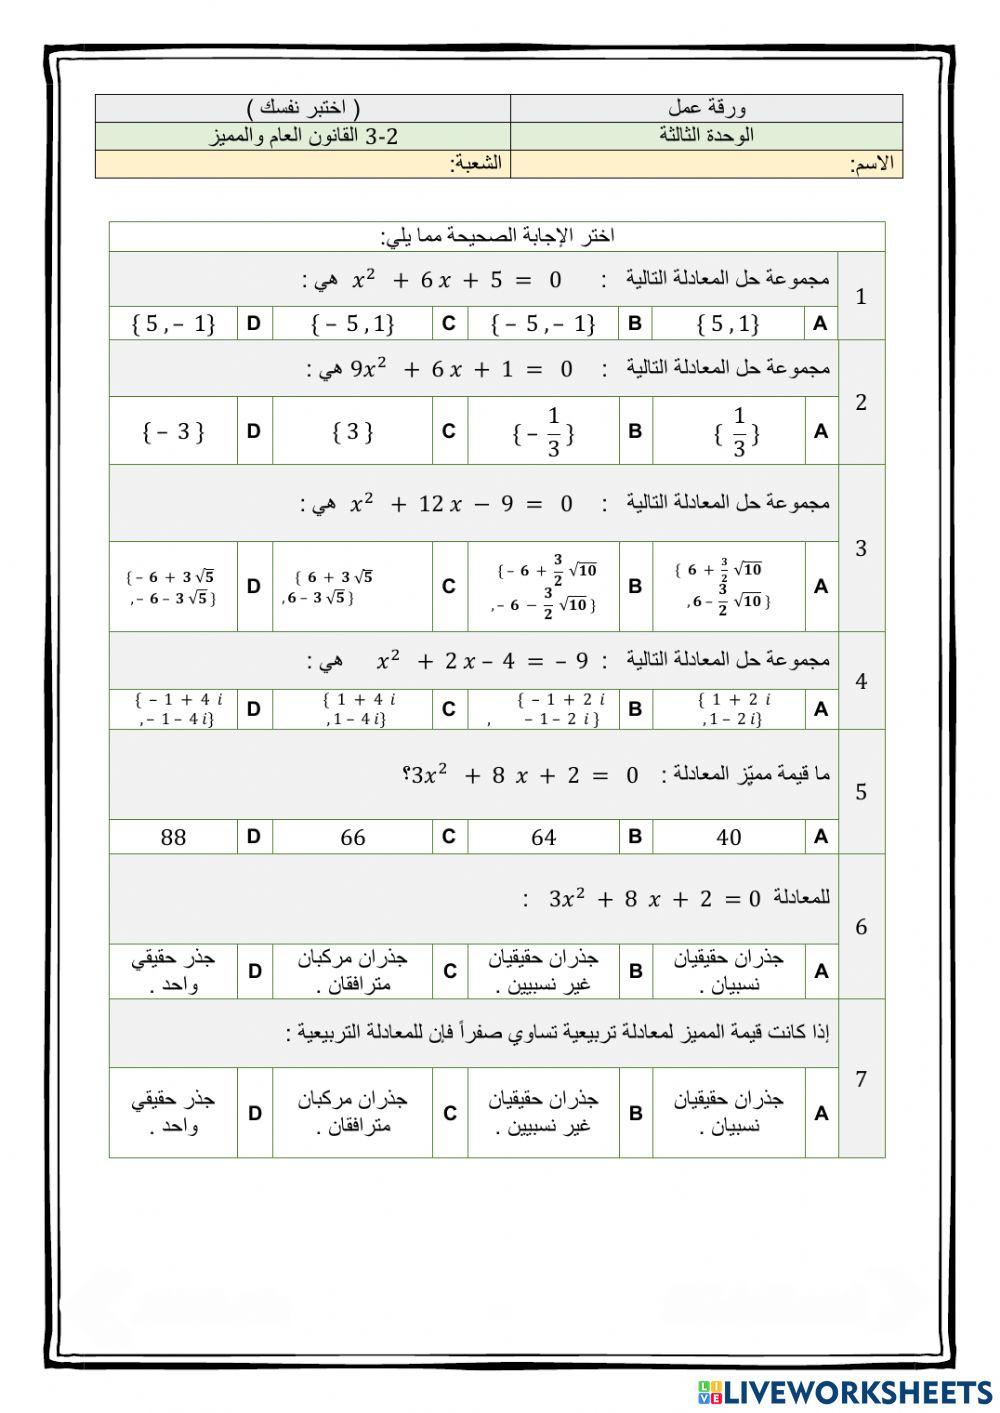 ورقة عمل
( اختبر نفسك )
الوحدة الثالثة
3-2 القانون العام والمميز
الاسم:
الشعبة:
اختر الإجابة الصحيحة مما يلي:
1
مجموعة حل المعادلة التالية : x² + 6x + 5 = 0 هي :
A { 5 , 1}
B {− 5 , − 1}
C {− 5 , 1}
D { 5 , − 1}
2
مجموعة حل المعادلة التالية : 9x² + 6x + 1 = 0 هي :
A { 1/3 }
B {− 1/3 }
C { 3 }
D {− 3 }
3
مجموعة حل المعادلة التالية : x² + 12x − 9 = 0 هي :
A { 6 + 3/2 √10
, 6 − 3/2 √10 }
B {− 6 + 3/2 √10
, − 6 − 3/2 √10 }
C { 6 + 3 √5
, 6 − 3 √5 }
D {− 6 + 3 √5
, − 6 − 3 √5 }
4
مجموعة حل المعادلة التالية : x² + 2x − 4 = − 9 هي :
A { 1 + 2 i
, 1 − 2 i}
B { − 1 + 2 i
, − 1 − 2 i }
C { 1 + 4 i
, 1 − 4 i}
D { − 1 + 4 i
, − 1 − 4 i}
5
ما قيمة مميّز المعادلة : 3x² + 8 x + 2 = 0؟
A 40
B 64
C 66
D 88
6
للمعادلة 3x² + 8 x + 2 = 0 :
A جذران حقيقيان
نسبيان .
B جذران حقيقيان
غير نسبيين .
C جذران مركبان
مترافقان .
D جذر حقيقي
واحد .
7
إذا كانت قيمة المميز لمعادلة تربيعية تساوي صفراً فإن للمعادلة التربيعية :
A جذران حقيقيان
نسبيان .
B جذران حقيقيان
غير نسبيين .
C جذران مركبان
مترافقان .
D جذر حقيقي
واحد .
LIVEWORKSHEETS